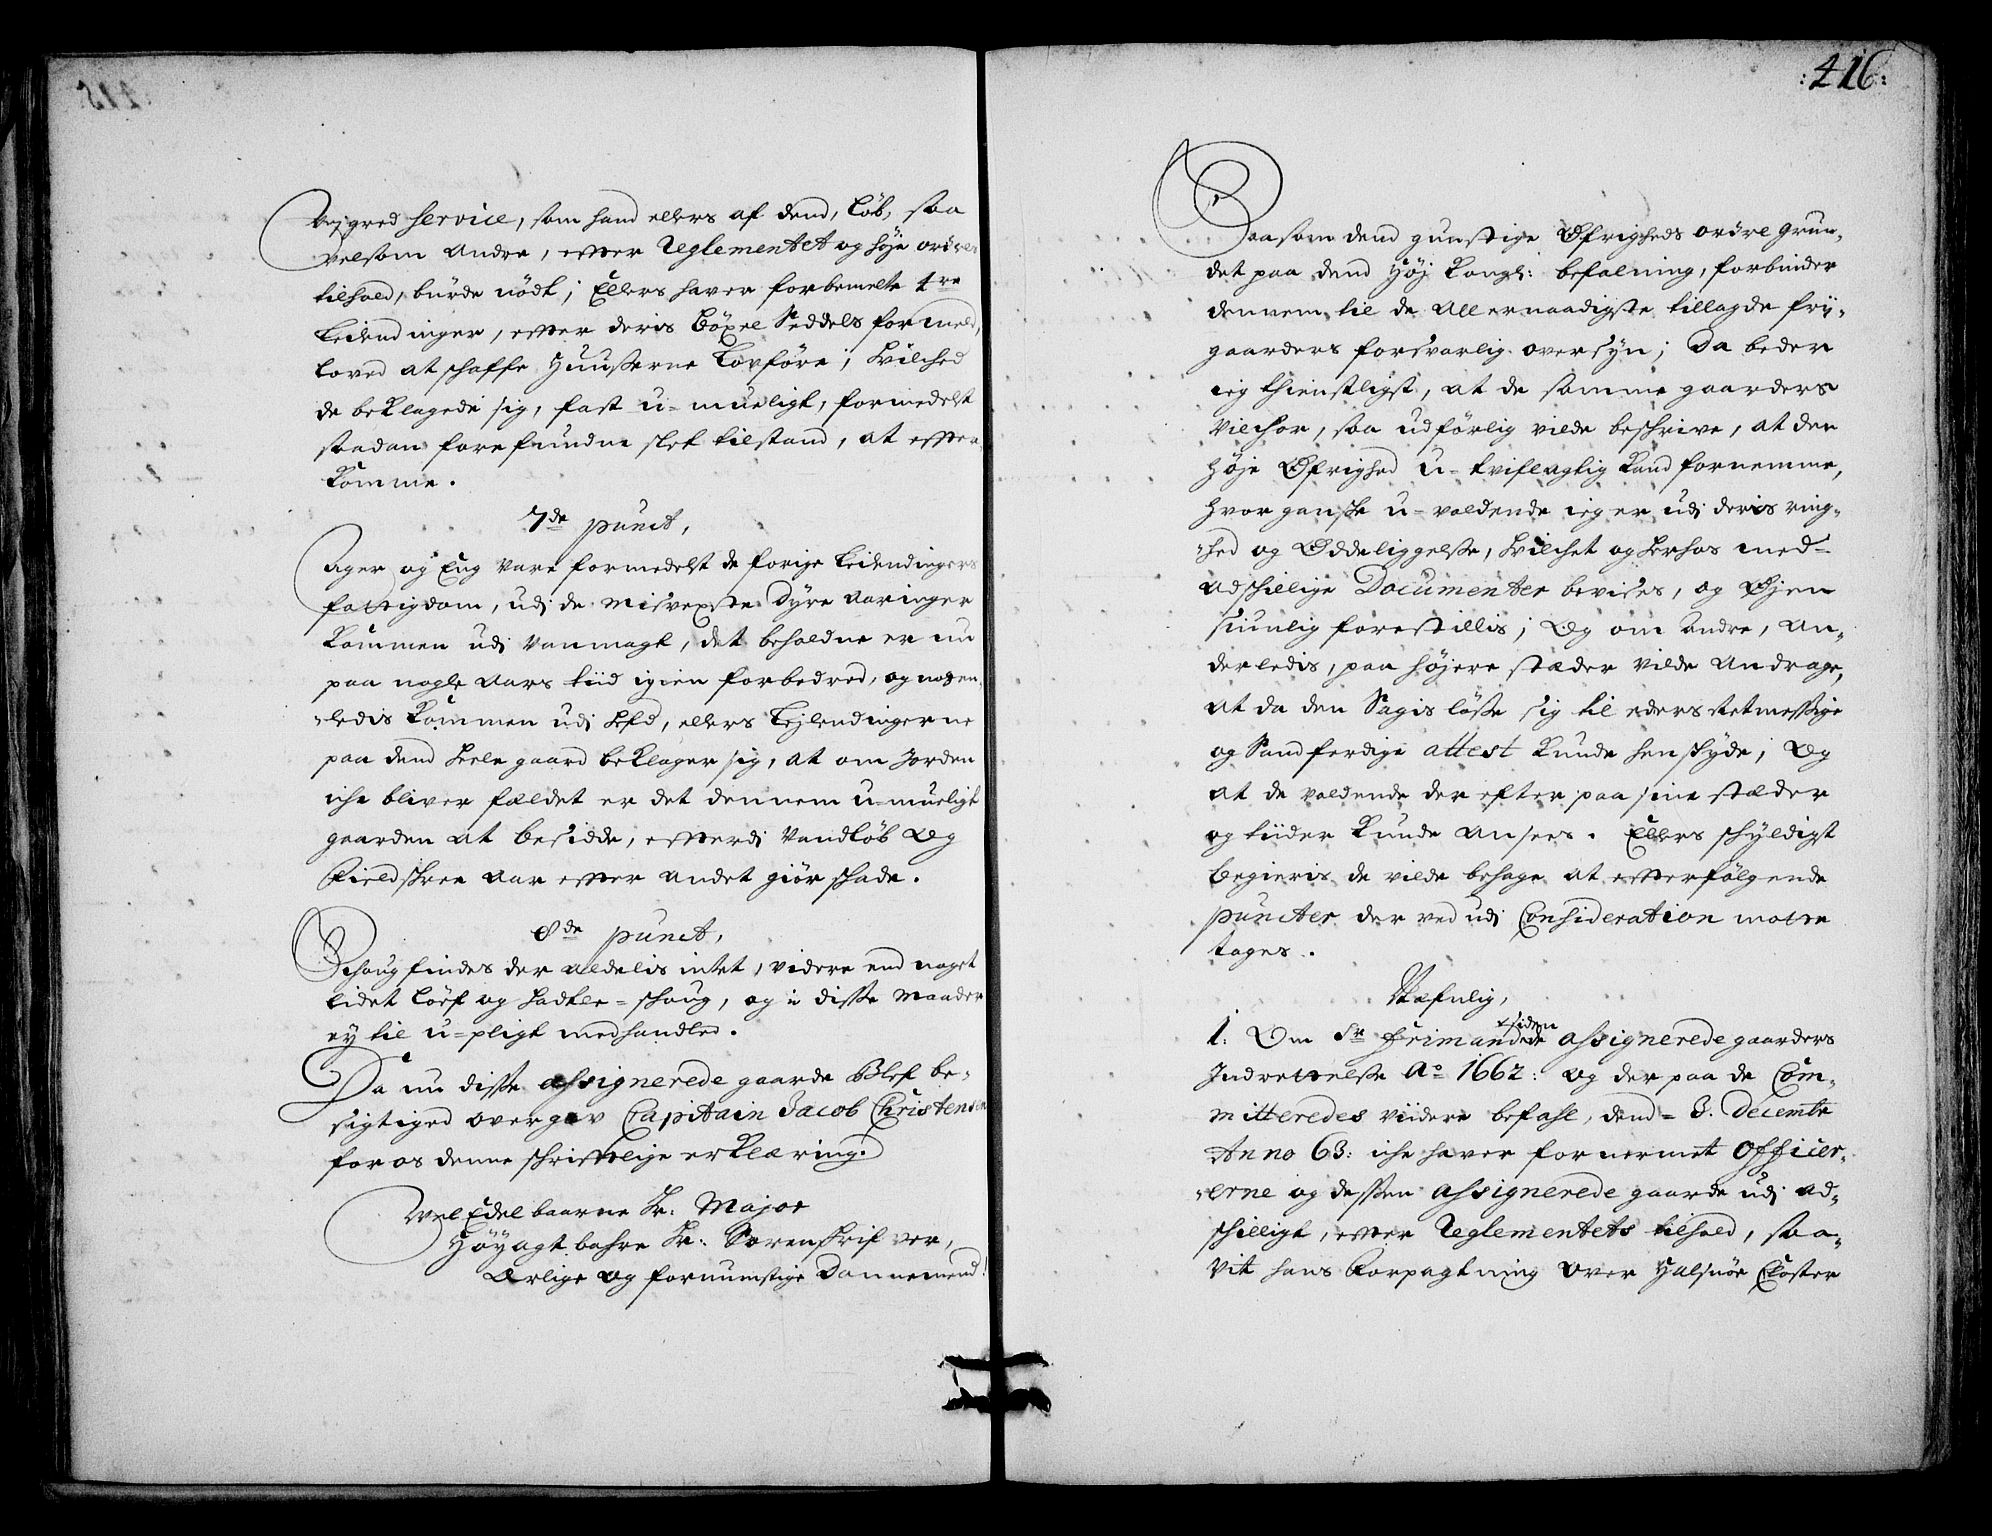 Vejgred service, som hand ellers af dend, Löb, saa
velsom Andre, effter Reglementet og höje ordres
tilhold, burde nödt; Ellers haver forbemelte 4re
Leiendinger, effter deris Böxel Seddels formeld,
loved at schaffe Huuserne Lovföre; Hvilched
de beklagede sig, fast u-mueligt, formedelst
saadan forefundne slet tilstand, at effter
komme.
7de punct,
Ager og Eng vare formedelst de forige Leiendingers
fattigdom, udj de Misvexste Dyre Aaringer
kommen udj Vanmagt, det beholdne er nu
paa nogle Aars tiid igien forbedred, og nogen-
ledis kommen udj Hefd, ellers Lejlendingerne
paa dend heele gaard beklager sig, at om Jorden
iche bliver fældet er det dennem u-mueligt
gaarden at besidde, effterdj Vandlöb og
Fieldskree Aar effter Andet giör schade.
8de punct,
Schoug findes der Aldelis intet, videre end noget
lidet Löef og Hadtle-schoug, og i disse Maader
ey til u-pligt medhandled.
Da nu disse assignerede gaarde Blef be-
sigtiged overgav Capitain Jacob Christensen
for os denne schrifftlige erklæring.
Wel Edelbaarne Hr: Major
Höyagtbahre Hr: Sorenskrifver,
Ærlige og fornumstige Dannemend!
:416:
Saasom dend gunstige Øfrigheds ordre grun-
det paa dend Höj Kongl: befalning, forbinder
dennem til de Allernaadigste tillagde frii-
gaarders forsvarlig oversyn; Da beder
ieg thienstligst, at de samme gaarders
Vilchor, saa udförlig vilde beschrive, at den
Höje Øfrighed u-tviflagtig kand fornemme,
hvor gansche u-voldende ieg er udj deris ring-
hed og Ødeliggelse, hvilchet og herhos med-
Adschillige Documenter bevises, og Øjen
siunlig forestillis; Og om Andre, An-
derledis, paa höjere stæder vilde Andrage,
at da den Sagis löse sig til eders retmessige
og Sandferdige attest kunde henschyde; Og
at de voldende derefter paa sine stæder
og tiider kunde Ansees. Ellers schyldigst
begieris de vilde behage at effterfölgende
puncter derved udj Consideration motte
tages.
Næfnlig,
1: Om Sr Friman siden de assignerede gaarders
Indrettelse Ao 1662: og der paa de Com-
mitteredes viidere befahl, dend 3. Decembr
Anno 63: iche haver fornermet officer-
erne og dessen assignerede gaarde udj Ad-
schilligt, effter Reglementets tilhold, saa-
vit hans Forpagtning over Halsnöe Closter